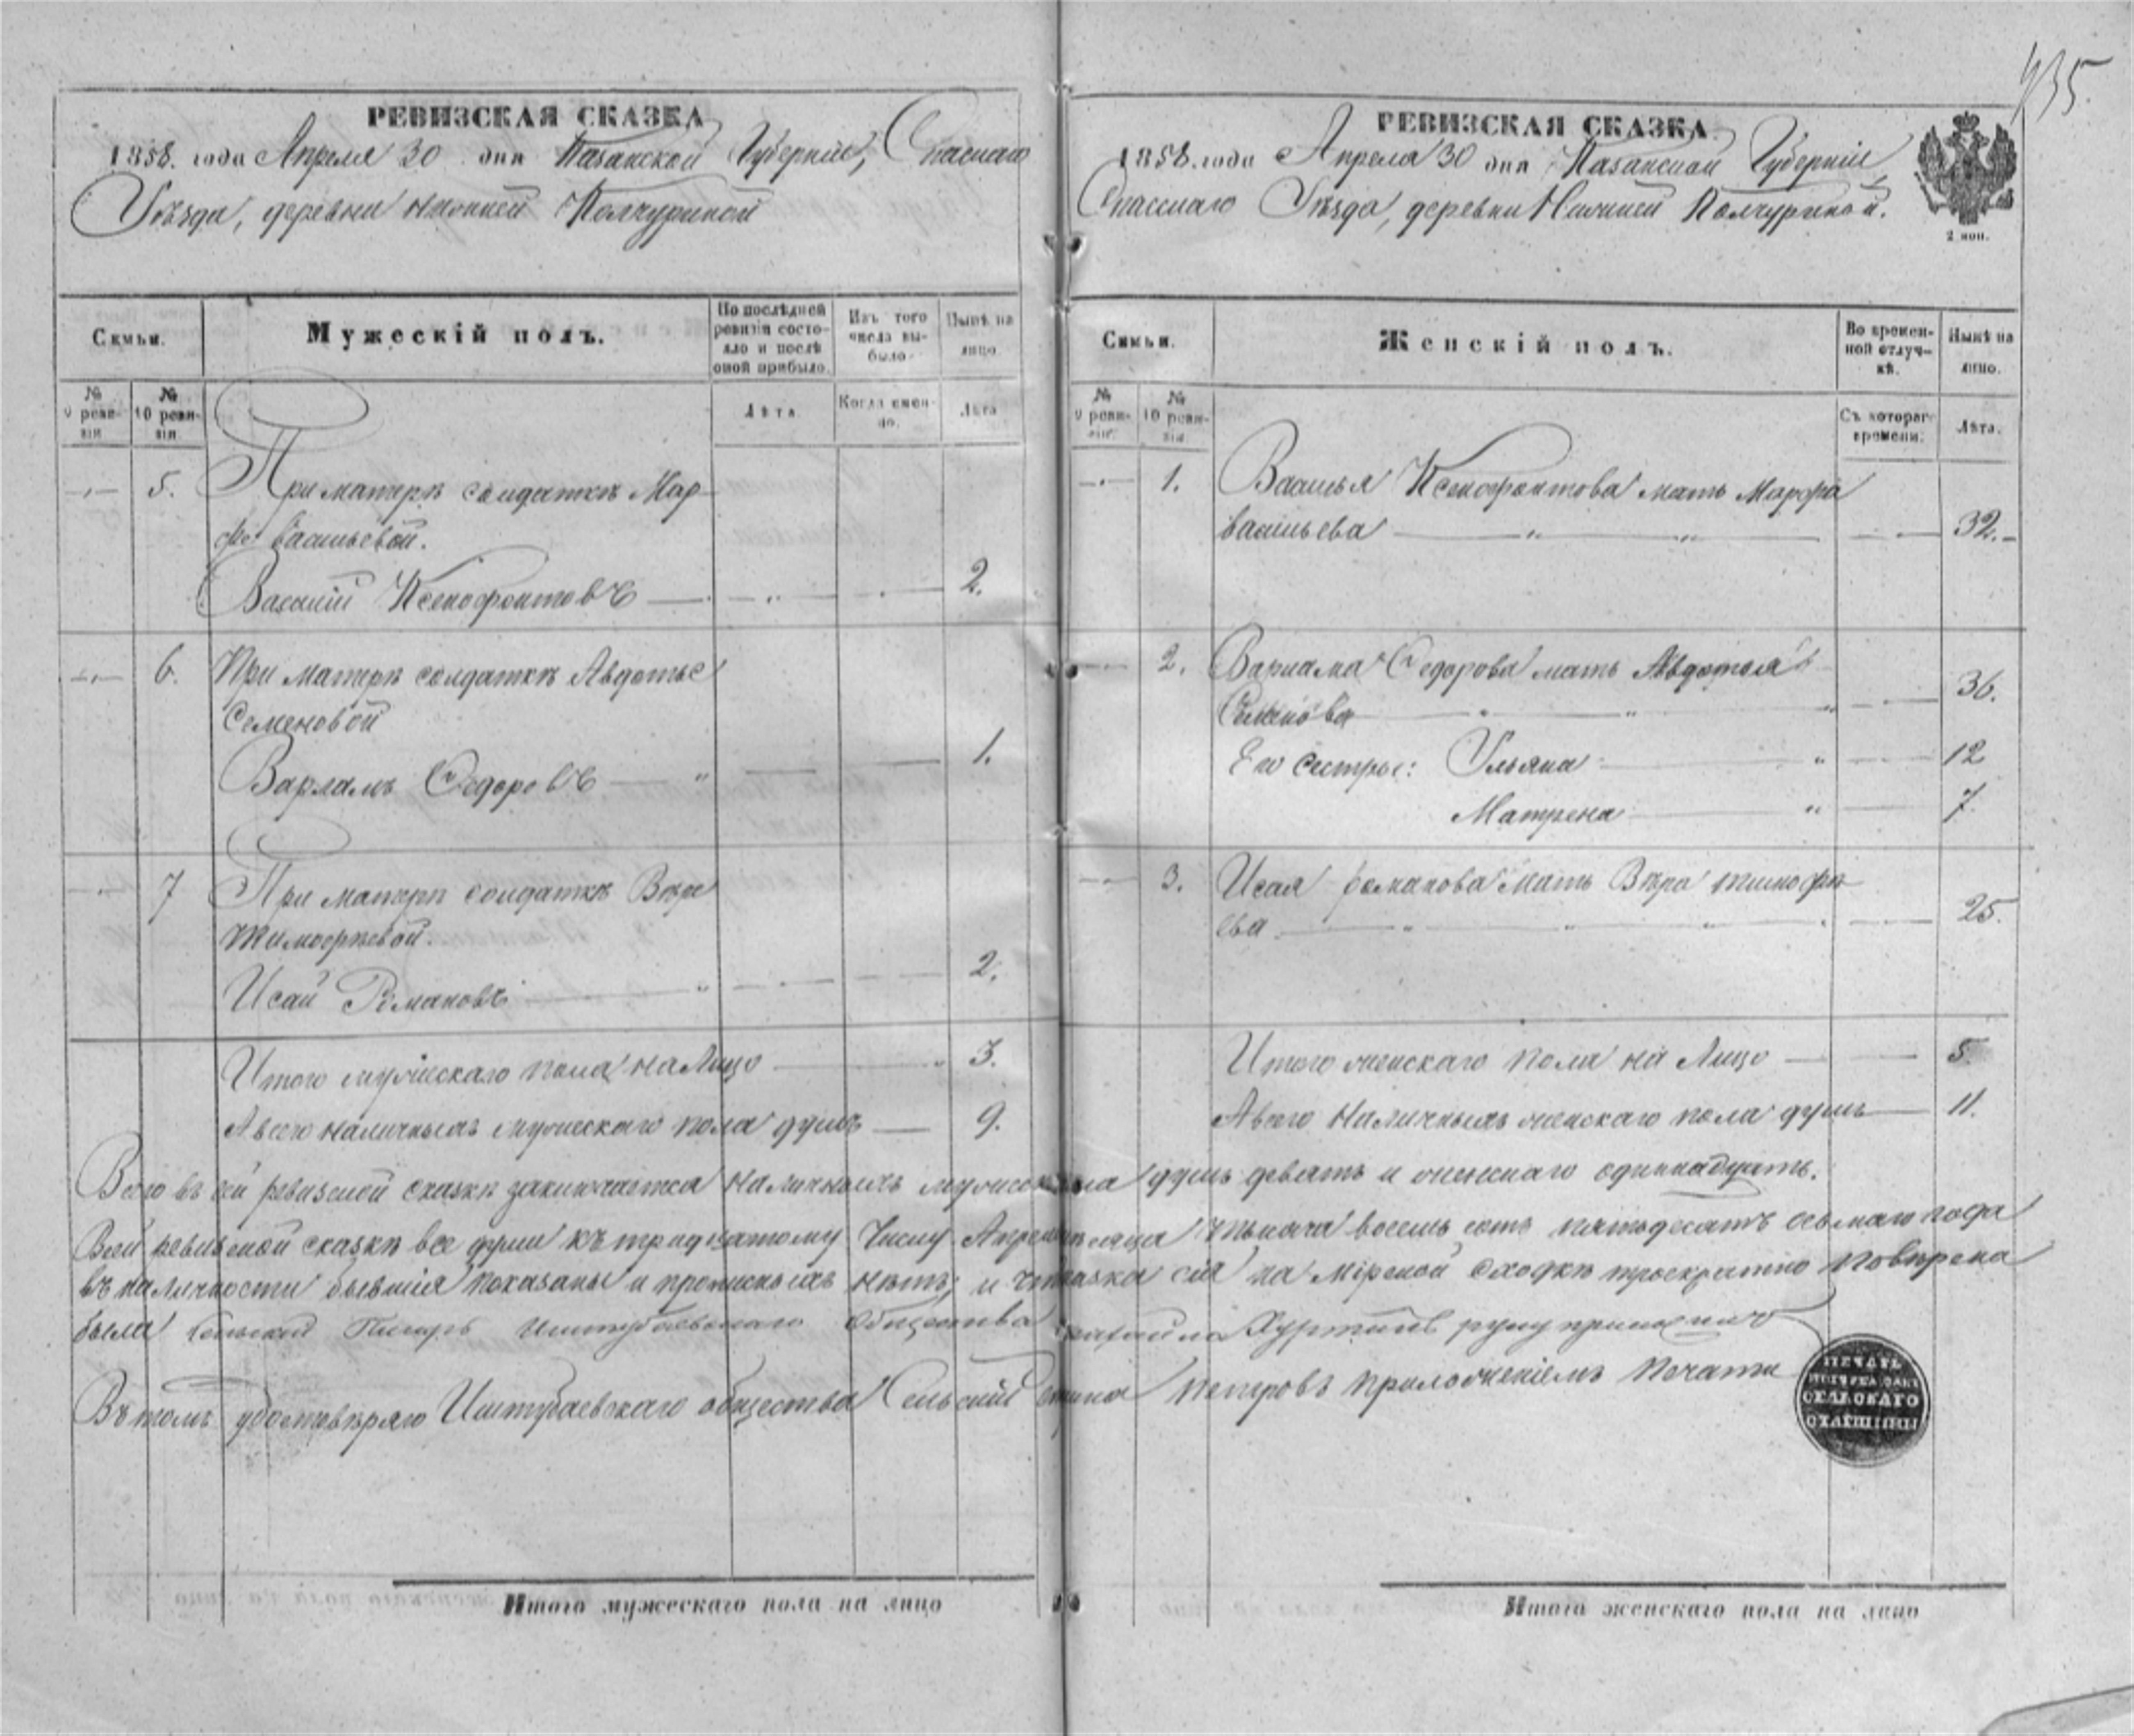 435.
РЕВИЗСКАЯ СКАЗКА
1858. года Апреля 30 дня Казанской Губерніи, Спаскаго
Уѣзда, деревни нижней Колчуриной
Семьи.
Мужескій полъ.
По послѣдней
ревизіи состо-
яло и послѣ
оной прибыло.
Изъ того
числа вы-
было.
Нынѣ на
лицо.
№
9 реви-
зіи
№
10 реви-
зіи.
Лѣта.
Когда имен-
но.
Лѣта
5. При матерѣ солдаткѣ Мар-
фе васильевой.
Василій Ксенофонтовъ 2.
6. При матерѣ солдаткѣ Авдотье
Семеновой
Варламъ Ѳедоровъ 1.
7 При матерѣ солдаткѣ Вѣре
тимофѣевой.
Исай Романовъ 2.
Итого мужескаго пола на Лицо 3.
А всего наличныхъ мужескаго пола душъ 9.
РЕВИЗСКАЯ СКАЗКА.
1858. года Апреля 30 дня Казанской Губерніи
Спасскаго Уѣзда, деревни Нижней Колчуриной.
2 коп.
Семьи.
Женскій полъ.
Во времен-
ной отлуч-
кѣ.
Нынѣ на
лицо.
№
9 реви-
зіи.
№
10 реви-
зіи.
Съ котораг-
времени.
Лѣта.
1. Василья Ксенофонтова мать Марфа
васильева 32.
2. Варлама Ѳедорова мать Авдотья
Семенова 36.
Его сестры: Ульяна 12
Матрена 7.
3. Исая романова мать Вѣра тимофѣ-
ева 25.
Итого женскаго пола на Лицо 5.
А всего Наличныхъ женскаго пола душъ 11.
Всего въ сей ревизской сказкѣ заключается наличныхъ душъ девять и женскаго одиннадцать.
Всей ревизской сказкѣ все души къ тридцатому Числу тысяча восемь сотъ пятьдесятъ года
въ наличности бывшія показаны и прописныхъ нѣтъ, и сія на Мірской сходкѣ троекратно повѣрена
была Сельскій Писарь Иштубаевскаго общества руку приложилъ
Въ томъ удостовѣряю Иштубаевскаго общества Сельскій Петровъ приложеніемъ печати
ПЕЧАТЬ
СЕЛЬСКАГО
СТАРШИНЫ
Итого мужескаго пола на лицо
Итого женскаго пола на лицо